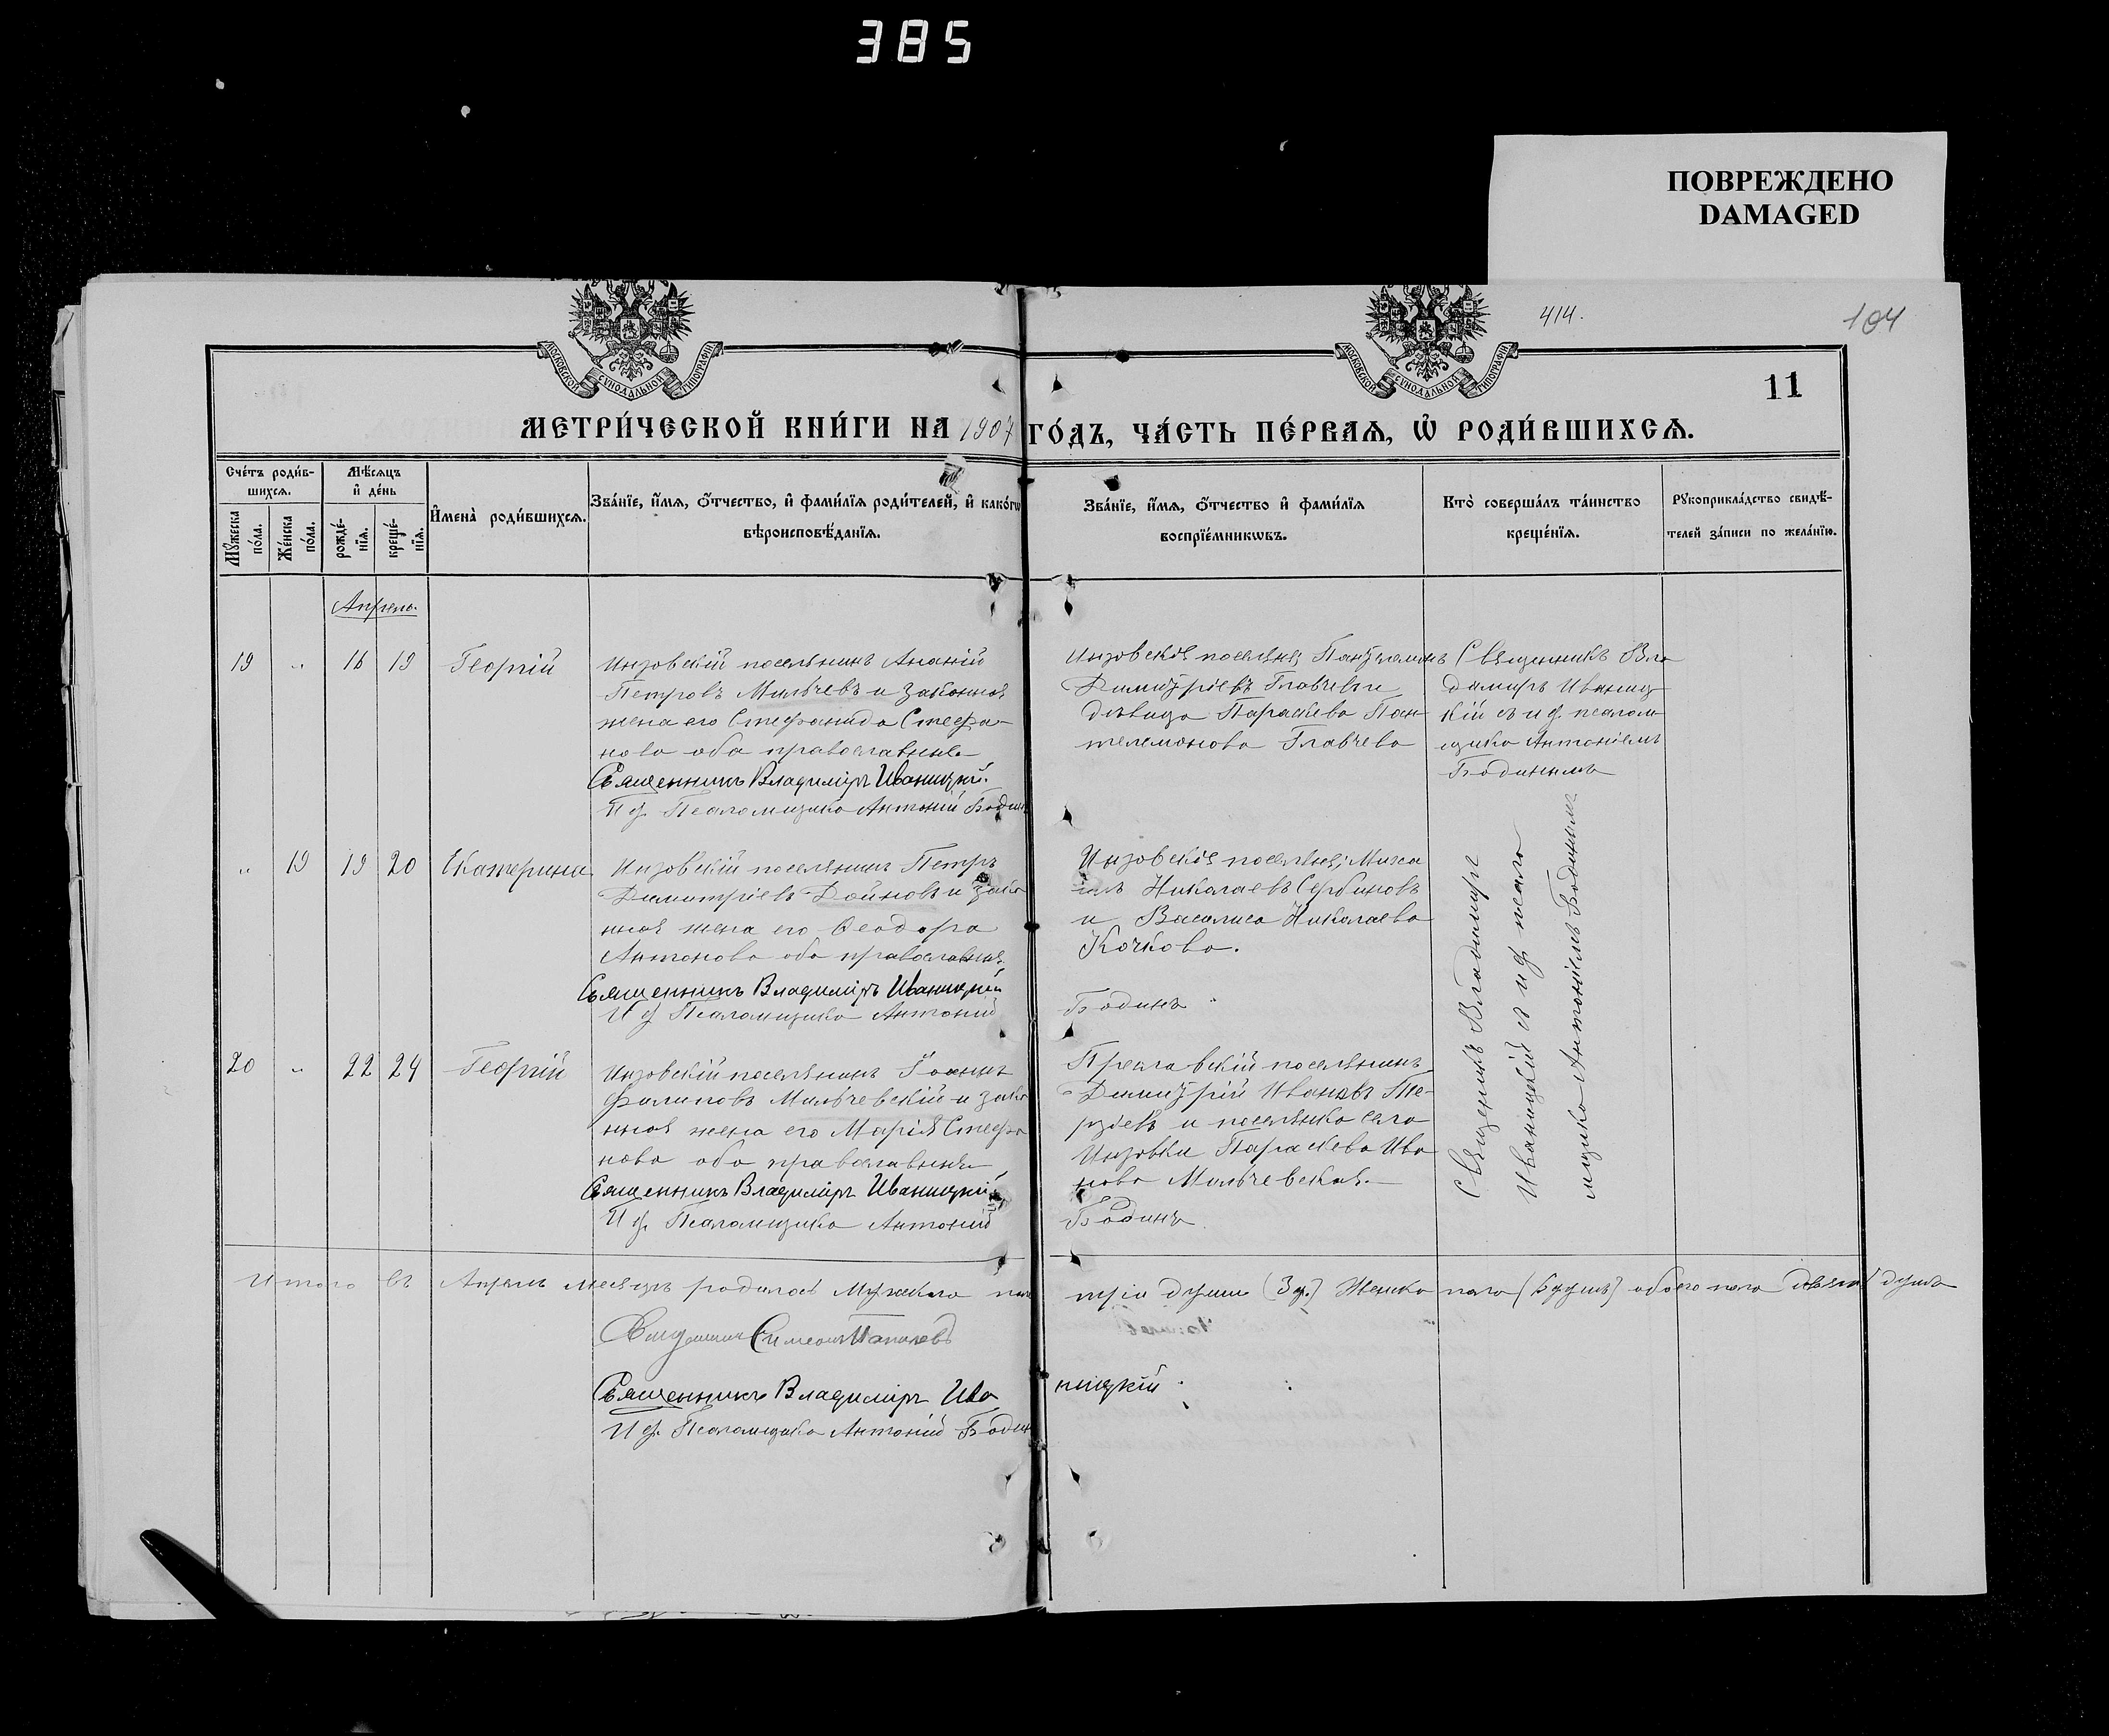 385
ПОВРЕЖДЕНО
DAMAGED
414.
104
МОСКОВСКОЙ СУНОДАЛЬНОЙ ТИПОГРАФІИ
МОСКОВСКОЙ СУНОДАЛЬНОЙ ТИПОГРАФІИ
11
МЕТРИ́ЧЕСКОЙ КНИ́ГИ НА 1907 ГО́ДЪ, ЧА́СТЬ ПЕ́РВАѦ, Ѡ҆ РОДИ́ВШИХСѦ.
Сче́тъ роди́в-
шихсѧ.
Мꙋ́жеска
по́ла.
Же́нска
по́ла.
Мѣ́сѧцъ
и҆ де́нь
рожде́-
нїѧ.
креще́-
нїѧ.
И҆мена̀ роди́вшихсѧ.
Зва́нїе, и҆́мѧ, ѻ҆́тчество, и҆ фами́лїѧ роди́телей, и҆ како́гѡ
вѣроисповѣ́данїѧ.
Зва́нїе, и҆́мѧ, ѻ҆́тчество и҆ фами́лїѧ
воспрїе́мникѡвъ.
Кто̀ соверша́лъ та́инство
креще́нїѧ.
Рꙋкоприкла́дство свидѣ́-
телей за́писи по жела́нїю.
Апрель.
19 „ 16 19 Георгій
Инзовскій поселянинъ Ананій
Петровъ Мильчевъ и законная
жена его Стефанида Стефа-
нова оба православные
Священникъ Владиміръ Иваницкій.
И ф. Псаломщика Антоній Бодин
Инзовскія поселяне; Пантелеимонъ
Димитріевъ Главчевъ и
дѣвица Параскева Пан-
телемонова Главчева
Священникъ Вла
димиръ Иваниц
кій съ и ф. псалом
щика Антоніемъ
Бодинымъ
„ 19 19 20 Екатерина
Инзовскій поселянинъ Петръ
Димитріевъ Дойновъ и зако
нная жена его Ѳеодора
Антонова оба православные.
Священникъ Владиміръ Иваницкій
И ф Псаломщика Антоній
Инзовскія поселяне; Миха
илъ Николаевъ Сербиновъ
и Василиса Николаева
Кочкова.
Бодинъ
Священникъ Владимиръ
Иваницкій съ и ф псало
мщика Антоніемъ Бодинымъ
20 „ 22 24 Георгій
Инзовскій поселянинъ Іоаннъ
Филиповъ Мильчевскій и зако
нная жена его Марія Стефа
нова оба православные
Священникъ Владиміръ Иваницкій
И ф. Псаломщика Антоній
Преславскій поселянинъ
Димитрій Ивановъ Тер-
зіевъ и поселянка села
Инзовки Параскева Ива
нова Мильчевская.
Бодинъ
Итого въ Апрель месяцъ родилось Мужскаго пола три души (3 д.) Женска пола (6 душъ) обоего пола девять душъ
Священникъ Владиміръ Ива
ницкій
И ф. Псаломщика Антоній Бодин